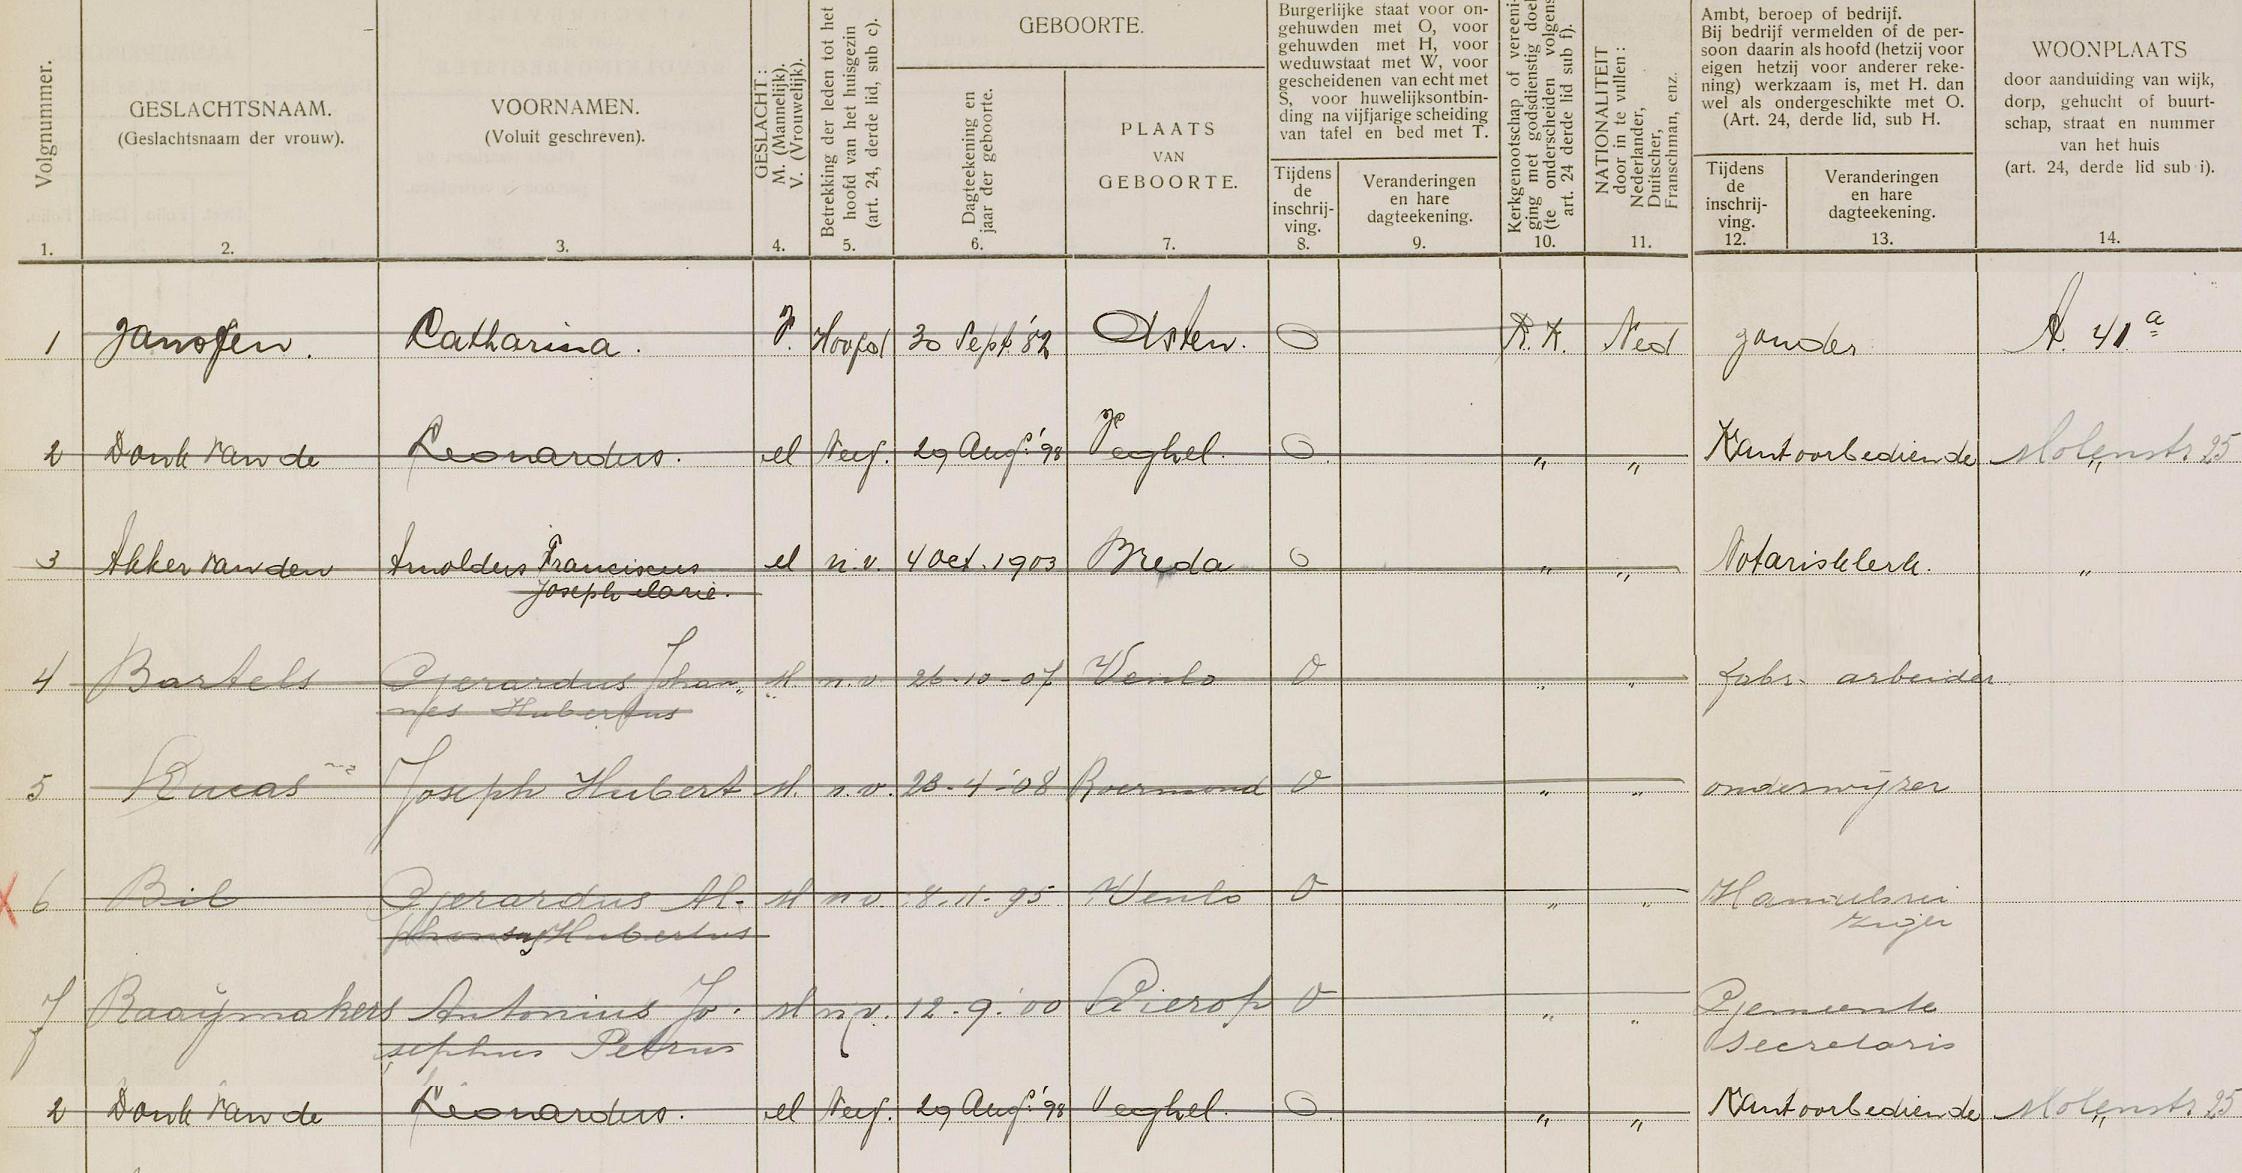 Volgnummer.
1.
GESLACHTSNAAM.
(Geslachtsnaam der vrouw).
2.
VOORNAMEN.
(Voluit geschreven).
3.
GESLACHT:
M. (Mannelijk).
V. (Vrouwelijk).
4.
Betrekking der leden tot het
hoofd van het huisgezin
(art. 24, derde lid, sub c).
5.
GEBOORTE.
Dagteekening en
jaar der geboorte.
6.
PLAATS
VAN
GEBOORTE.
7.
Burgerlijke staat voor on-
gehuwden met O, voor
gehuwden met H, voor
weduwstaat met W, voor
gescheidenen van echt met
S, voor huwelijksontbin-
ding na vijfjarige scheiding
van tafel en bed met T.
Tijdens
de
inschrij-
ving.
8.
Veranderingen
en hare
dagteekening.
9.
Kerkgenootschap of vereeni-
ging met godsdienstig doel
(te onderscheiden volgens
art. 24 derde lid sub f).
10.
NATIONALITEIT
door in te vullen:
Nederlander,
Duitscher,
Franschman, enz.
11.
Ambt, beroep of bedrijf.
Bij bedrijf vermelden of de per-
soon daarin als hoofd (hetzij voor
eigen hetzij voor anderer reke-
ning) werkzaam is, met H. dan
wel als ondergeschikte met O.
(Art. 24, derde lid, sub H.
Tijdens
de
inschrij-
ving.
12.
Veranderingen
en hare
dagteekening.
13.
WOONPLAATS
door aanduiding van wijk,
dorp, gehucht of buurt-
schap, straat en nummer
van het huis
(art. 24, derde lid sub i).
14.
1 Janssen. Catharina. V. Hoofd 30 Sept '82 Asten. O R.K. Ned zonder A. 41 a
2 Donk van de Leonardus. M Neef. 29 Aug. '98 Veghel. O. " " Kantoorbediende Molenstr. 25 "
3 Akker van den Arnoldus Franciscus M n.v. 4 Oct. 1903 Breda O " " Notarisklerk. "
Joseph Marie.
4 Bartels Gerardus Johan„ M n.v. 26-10-07 Venlo O " " fabr. arbeider
nes Hubertus
5 Lucas Joseph Hubert M. n.v. 23-4-'08 Roermond O " " onderwijzer
X 6 Bil Gerardus Al- M n.v. 18.11.95 Venlo O " "
Hubertus
7 Raaijmakers Antonius Jo- M n.v. 12.9.'00 O " " Gemeente
sephus Petrus Secretaris
2 Donk van de Leonardus. M Neef. 29 Aug. '98 Veghel. O. " " Kantoorbediende Molenstr. 25 "